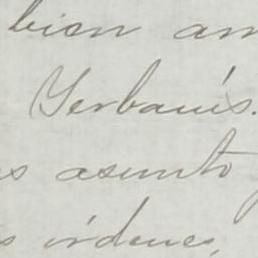 bien am
Yerbanís.
s asunto y
s órdenes,